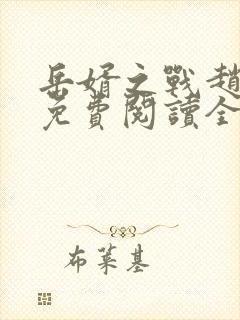 岳婿之戰趙
免費閱讀全
布萊基